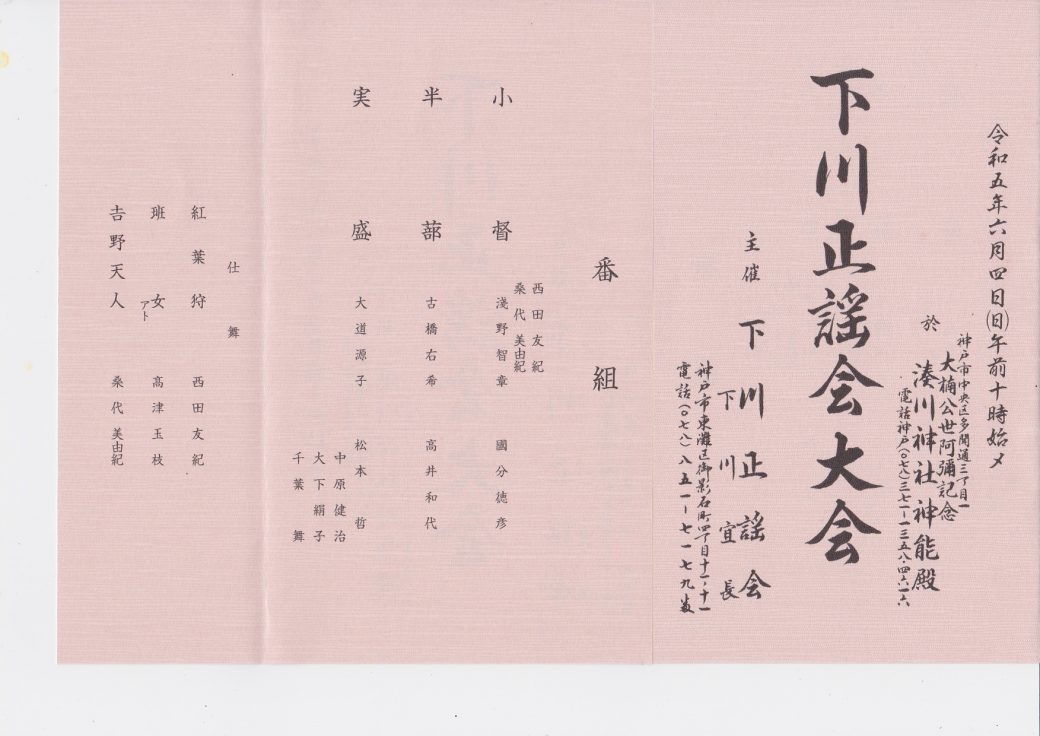 令和五年六月四日(日)午前十時始メ
神戸市中央区多聞通三丁目一
大楠公世阿彌記念
於 湊川神社神能殿
電話神戸(〇七八)三七一ー一三五八・四六一六
下川正謡会大会
主催 下川正謡会
下川宜長
神戸市東灘区御影石町四丁目十一ー十一
電話(〇七八)八五一ー七一七九番
番組
西田友紀
桑代美由紀
小督 淺野智章 國分徳彦
半蔀 古橋右希 高井和代
実盛 大道源子 松本哲
中原健治
大下絹子
千葉舞
仕舞
紅葉狩 西田友紀
班女アト 高津玉枝
吉野天人 桑代美由紀